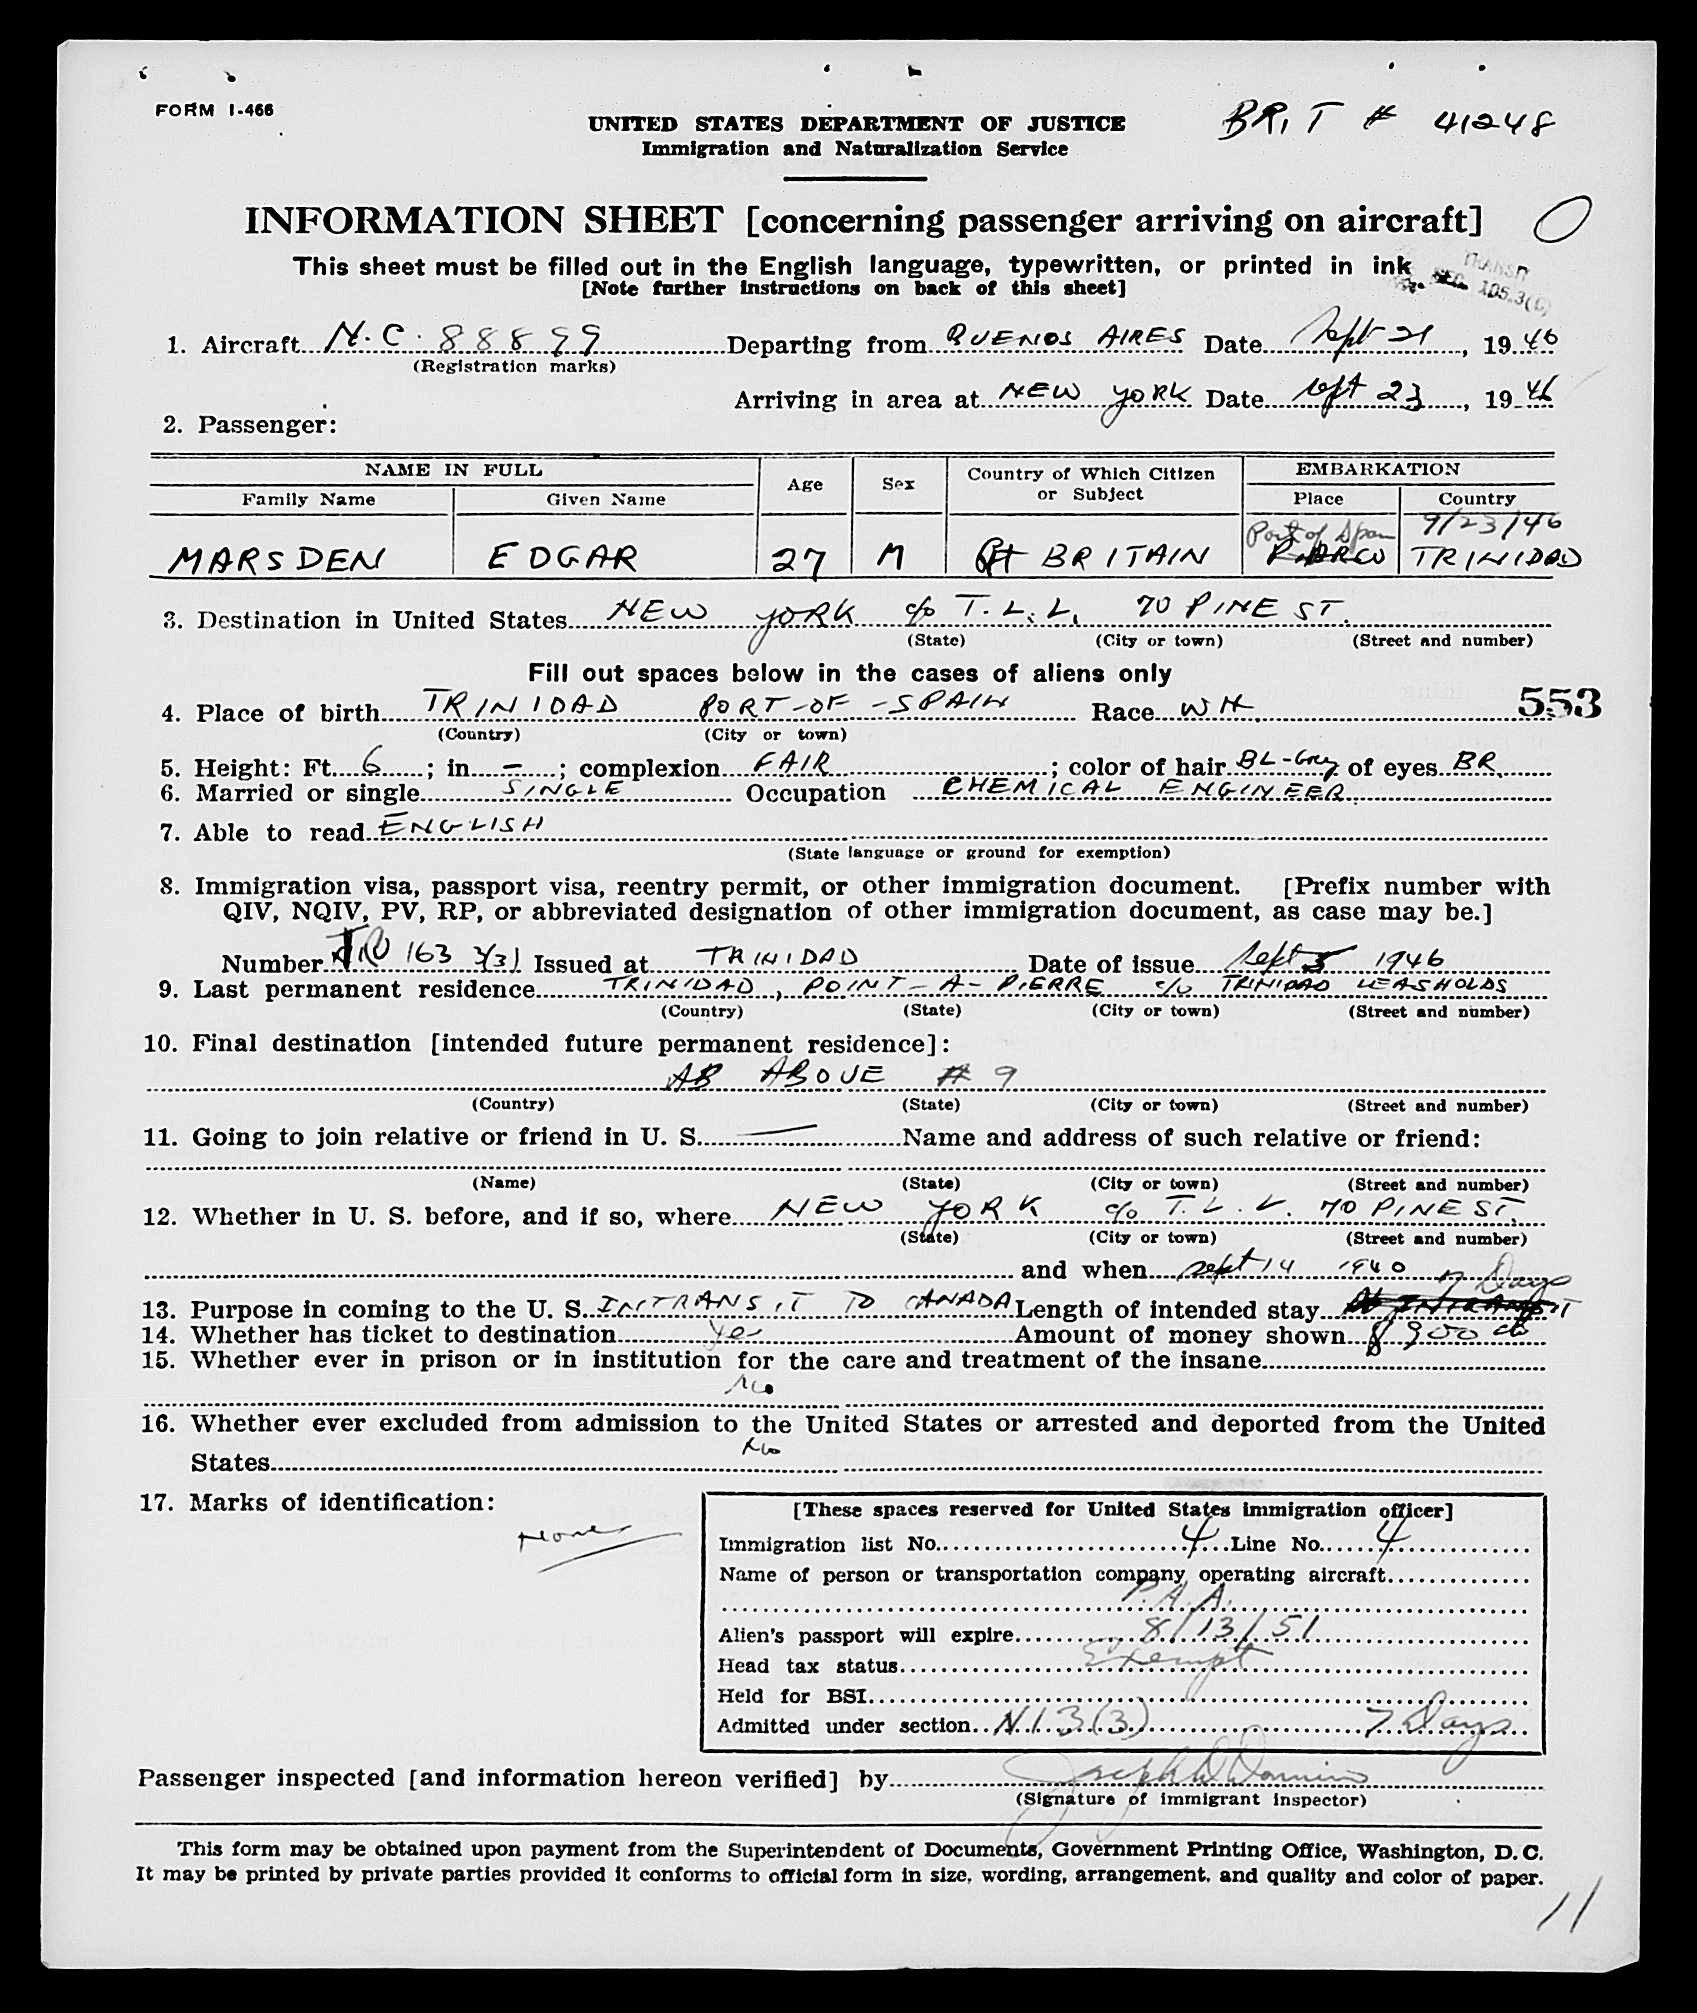 FORM I-466
BRIT # 41248
UNITED STATES DEPARTMENT OF JUSTICE
Immigration and Naturalization Service
INFORMATION SHEET [concerning passenger arriving on aircraft] O
This sheet must be filled out in the English language, typewritten, or printed in ink
[Note further instructions on back of this sheet]
TRANSIT
SEC. 105.3(C)
1. Aircraft N.C. 88899 Departing from BUENOS AIRES Date Sept 21, 1946
(Registration marks)
Arriving in area at NEW YORK Date Sept 23, 1946
2. Passenger:
NAME IN FULL Age Sex Country of Which Citizen or Subject EMBARKATION
Family Name Given Name Place Country
Port of Spain 9/23/46
MARSDEN EDGAR 27 M Gt BRITAIN PIARCO TRINIDAD
3. Destination in United States NEW YORK c/o T.L.L. 70 PINE ST.
(State) (City or town) (Street and number)
Fill out spaces below in the cases of aliens only
4. Place of birth TRINIDAD PORT-OF-SPAIN Race WH 553
(Country) (City or town)
5. Height: Ft. 6; in. -; complexion FAIR; color of hair BL-Grey of eyes BR.
6. Married or single SINGLE Occupation CHEMICAL ENGINEER.
7. Able to read ENGLISH
(State language or ground for exemption)
8. Immigration visa, passport visa, reentry permit, or other immigration document. [Prefix number with
QIV, NQIV, PV, RP, or abbreviated designation of other immigration document, as case may be.]
Number 163 3(3) Issued at TRINIDAD Date of issue Sept 5 1946
9. Last permanent residence TRINIDAD, POINT-A-PIERRE c/o TRINIDAD LEASHOLDS
(Country) (State) (City or town) (Street and number)
10. Final destination [intended future permanent residence]:
AS ABOVE # 9
(Country) (State) (City or town) (Street and number)
11. Going to join relative or friend in U. S. — Name and address of such relative or friend:
(Name) (State) (City or town) (Street and number)
12. Whether in U. S. before, and if so, where NEW YORK c/o T.L.L. 70 PINE ST.
(State) (City or town) (Street and number)
and when Sept 14 1940
7 Days
13. Purpose in coming to the U. S. INTRANSIT TO CANADA Length of intended stay INTRANSIT
14. Whether has ticket to destination Yes Amount of money shown $ 900
15. Whether ever in prison or in institution for the care and treatment of the insane
No
16. Whether ever excluded from admission to the United States or arrested and deported from the United
States No
17. Marks of identification:
None
[These spaces reserved for United States immigration officer]
Immigration list No. 4 Line No. 4
Name of person or transportation company operating aircraft
P.A.A.
Alien's passport will expire 8/13/51
Head tax status Exempt
Held for BSI
Admitted under section N 13(3) 7 Days
Passenger inspected [and information hereon verified] by Joseph
(Signature of immigrant inspector)
This form may be obtained upon payment from the Superintendent of Documents, Government Printing Office, Washington, D. C.
It may be printed by private parties provided it conforms to official form in size, wording, arrangement, and quality and color of paper.
11